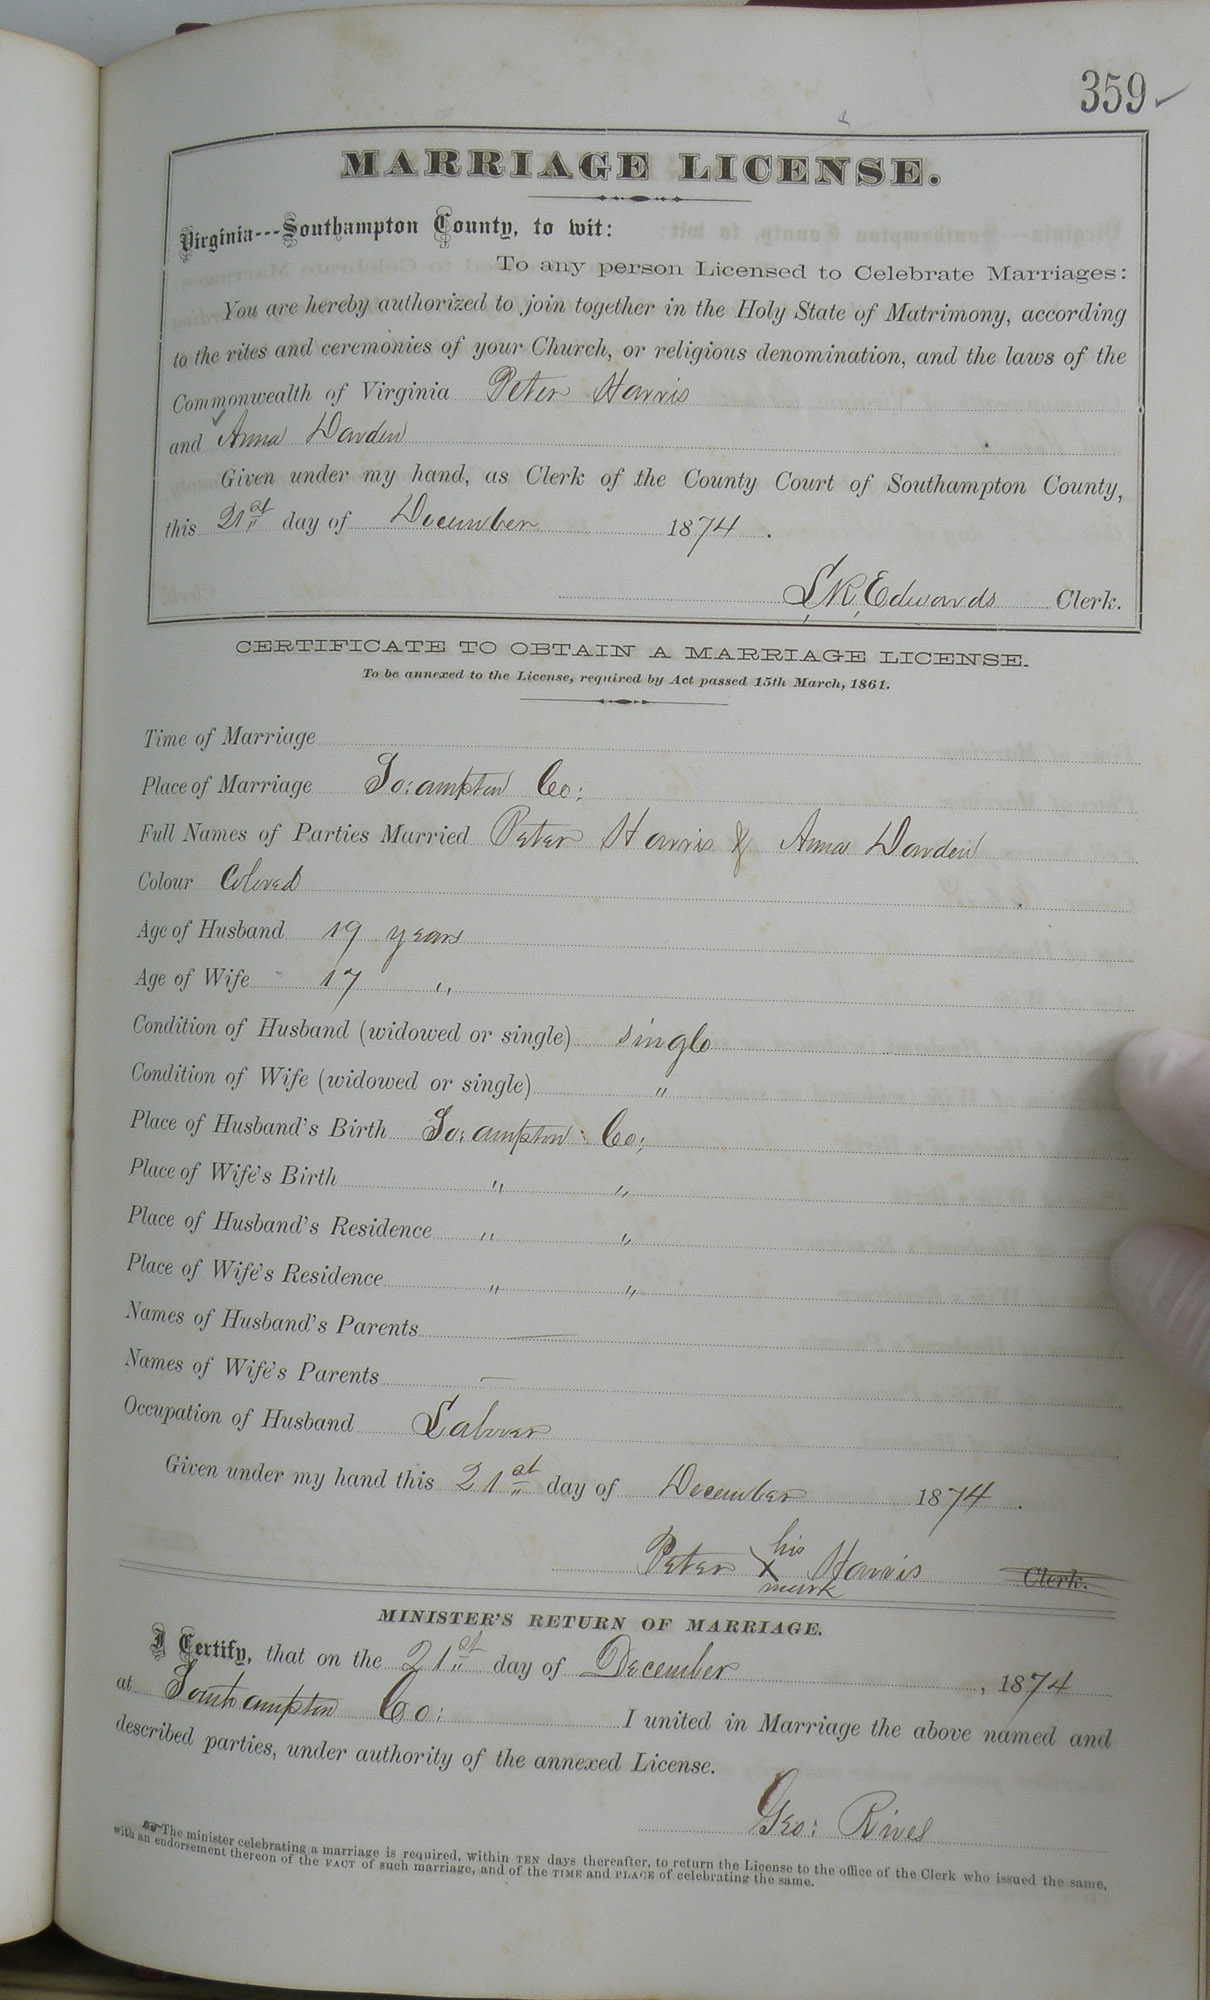 359
MARRIAGE LICENSE.
Virginia---Southampton County, to wit:
To any person Licensed to Celebrate Marriages:
You are hereby authorized to join together in the Holy State of Matrimony, according
to the rites and ceremonies of your Church, or religious denomination, and the laws of the
Commonwealth of Virginia Peter Harris
and Anna Darden
Given under my hand, as Clerk of the County Court of Southampton County,
this 21st day of December 1874.
L. R. Edwards Clerk.
CERTIFICATE TO OBTAIN A MARRIAGE LICENSE.
To be annexed to the License, required by Act passed 15th March, 1861.
Time of Marriage
Place of Marriage So:ampton Co:
Full Names of Parties Married Peter Harris & Anna Darden
Colour Colored
Age of Husband 19 years
Age of Wife 17 "
Condition of Husband (widowed or single) single
Condition of Wife (widowed or single) "
Place of Husband's Birth So:ampton Co:
Place of Wife's Birth " "
Place of Husband's Residence " "
Place of Wife's Residence " "
Names of Husband's Parents —
Names of Wife's Parents —
Occupation of Husband Laborer
Given under my hand this 21st day of December 1874.
Peter his X mark Harris Clerk.
MINISTER'S RETURN OF MARRIAGE.
I Certify, that on the 21st day of December, 1874
at Southampton Co: I united in Marriage the above named and
described parties, under authority of the annexed License.
Geo: Rives
The minister celebrating a marriage is required, within TEN days thereafter, to return the License to the office of the Clerk who issued the same,
with an endorsement thereon of the FACT of such marriage, and of the TIME and PLACE of celebrating the same.